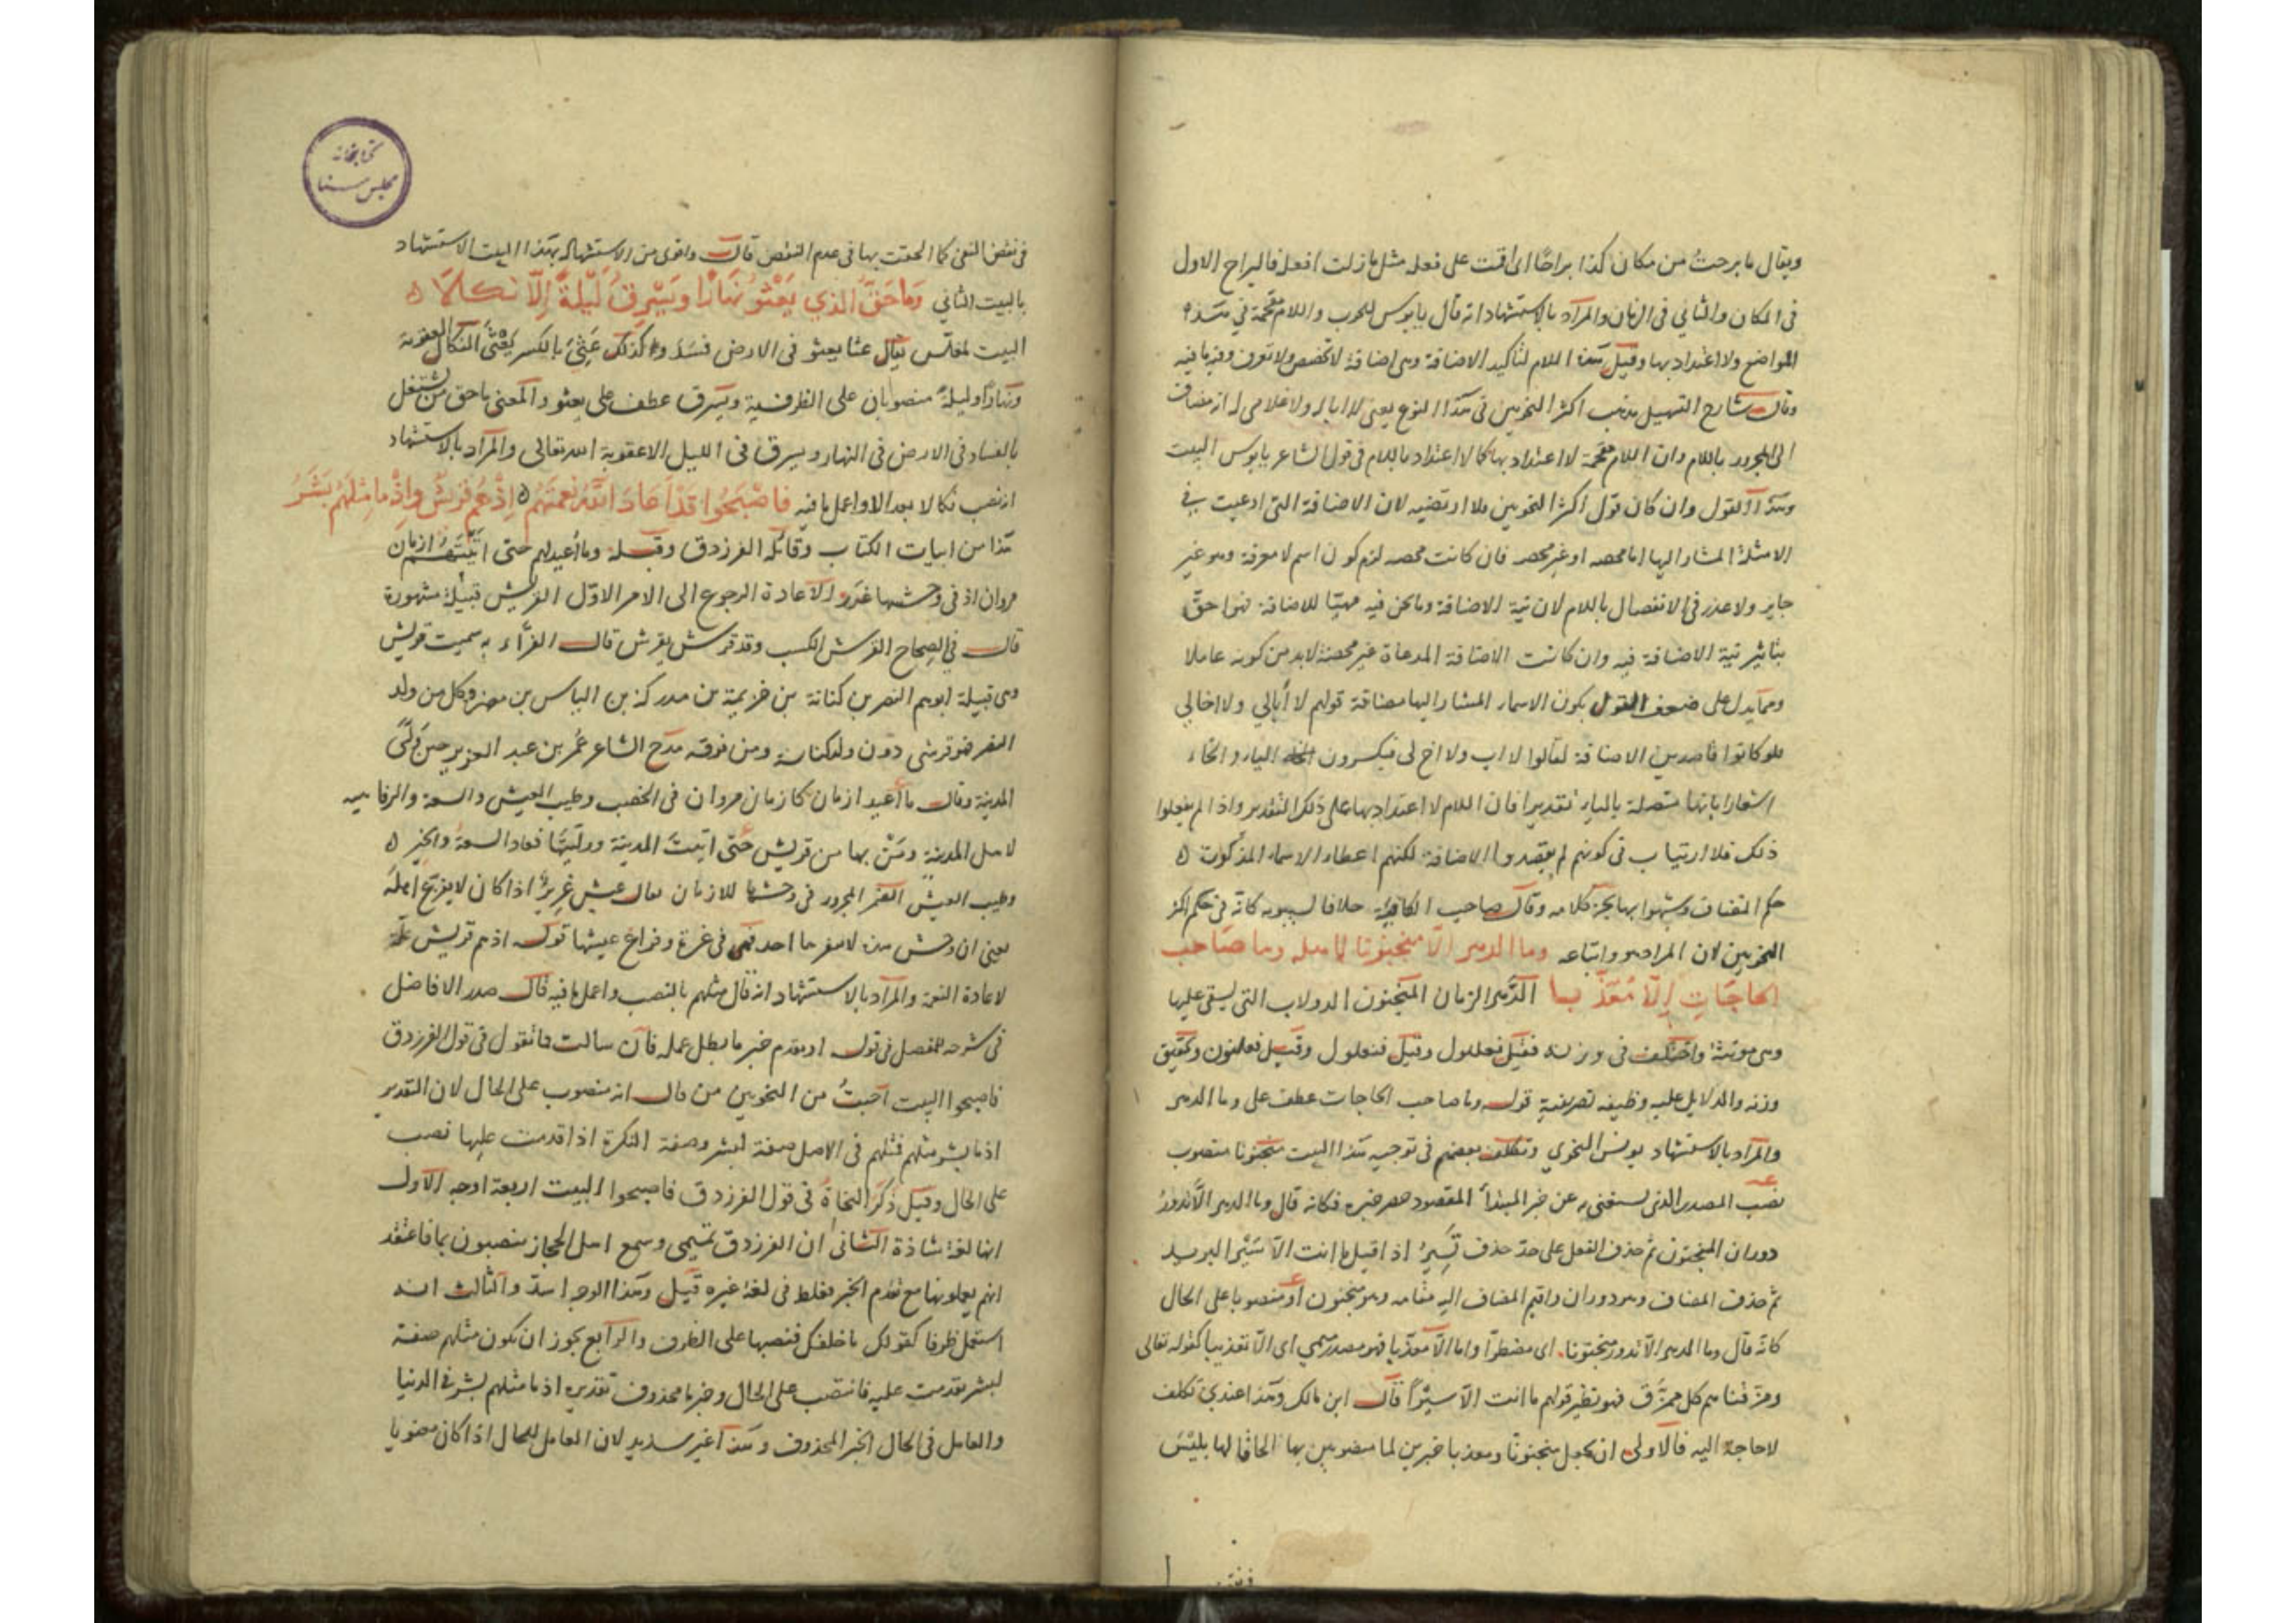 ويقال ما برحت من مكان كذا براحا اى اقمت على فعله مثل ما زلت افعل فالبراح الاول
فى المكان والثانى فى الزمان والمراد بالاستشهاد انه قال يا بوس للحرب واللام مقحمة في هذه
المواضع ولا اعتداد بها وقيل هذه اللام لتأكيد الاضافة وهى اضافة لا تخصص ولا تعرف وفيه ما فيه
وقال شارح التسهيل مذهب اكثر النحويين فى هذا النوع يعنى لا ابا له ولا غلامى له انه مضاف
الى المجرور باللام وان اللام مقحمة لا اعتداد بها كما لا اعتداد باللام فى قول الشاعر يا بوس البيت
وهذا القول وان كان قول اكثر النحويين فلا ارتضيه لان الاضافة التى ادعيت في
الامثلة المشار اليها اما محصه او غير محصه فان كانت محصه لزم كون اسم لا معرفة وهو غير
جايز ولا عذر فى الانفصال باللام لان نية الاضافة وما نحن فيه مهيّا للاضافة فهوا حقّ
بتاثير نية الاضافة فيه وان كانت الاضافة المدعاة غير محضة لابد من كونه عاملا
ومما يدل على ضعف القول بكون الاسماء المشار اليها مضافة قولهم لا أبالي ولا اخالي
فلو كانوا قاصدين الاضافة لقالوا لا اب ولا اخ لى فيكسرون الباء والخاء
اشعارا بانها متصلة بالياء تقديرا فان اللام لا اعتداد بها على ذلك التقدير واذا لم يفعلوا
ذلك فلا ارتياب فى كونهم لم يقصدوا الاضافة لكنهم اعطاء الاسماء المذكورة
حكم المضاف وشبهوا بها بجزء كلامه وقال صاحب الكافية خلافا لسيبويه كانه فى حكم اكثر
النحويين لان المراد هو واتباعه وما الدهر الّا منجنونا باهله وما صاحب
الحاجات إلّا مُعَذّبا الدّهر الزمان المنجنون الدولاب التى يستقى عليها
وهى مؤنثة واختلف فى وزنه فقيل فعللول وقيل فنعلول وقيل فعلنون وتحقيق
وزنه والدلايل عليه وظيفه تصريفية قوله وما صاحب الحاجات عطف على وما الدهر
والمراد بالاستشهاد يونس النحوي وتكلف بعضهم فى توجيه هذا البيت منجنونا منصوب
نصب المصدر الذى يستغنى به عن خبر المبتدأ المقصود حصر خبره فكانه قال وما الدهر الّا يدور
دوران المنجنون ثم حذف الفعل على حدّ حذف تسير اذا قيل ما انت الا سَيْر البريد
ثم حذف المضاف وهو دوران واقيم المضاف اليه مقامه وهو منجنون او منصوبا على الحال
كانه قال وما الدهر الّا يدور منجنونا اى مضطرا واما الّا معذّبا فهو مصدر ميمي اى الّا تعذيبا كقوله تعالى
ومزّقناهم كل ممزّق فهو نظير قولهم ما انت الّا سيرًا قال ابن مالك وهذا عندي تكلف
لا حاجة اليه فالاولى ان يجعل منجنونًا ومعذبا خبرين لما منصوبين بها الحاقا لها بليس
فى نقض النفى كما الحقت بها فى عدم النقض قال واقوى من الاستشهاد بهذا البيت الاستشهاد
بالبيت الثاني وَما حَقّ الذي يَعْثُو نهَارًا ويَسْرِقُ لَيْلَهُ إلّا نكالا
البيت لمغلّس يقال عثا يعثو فى الارض فسَدَ وكذلك عَثِىَ بالكسر يَعْثَى النكال العقوبة
ونهارًا وليلهُ منصوبان على الظرفية ويسرق عطف على يعثو والمعنى ما حق من يشتغل
بالفساد فى الارض فى النهار ويسرق فى الليل الا عقوبة الله تعالى والمراد بالاستشهاد
انه نصب نكالا بعد الا واعمل ما فيه فاصْبَحُوا قَدْ أعَادَ اللّهُ نعمتَهُم إذْ هُم قُرَيْش وإذْ ما مِثْلَهُم بَشَرُ
هذا من ابيات الكتاب وقائله الفرزدق وقبله وما أعيد لهم حتى اتيتهم ازمان
مروان اذ فى وحشها غرر الاعادة الرجوع الى الامر الاوّل القريش قبيلة مشهورة
قال في الصحاح القرش الكسب وقد قرش يقرش قال الفرّاء به سميت قريش
وهى قبيلة ابوهم النضر بن كنانة بن خزيمة بن مدركة بن الياس بن مضر فكل من ولد
النضر فهو قرشى دون ولد كنانة ومن فوقه مدح الشاعر عُمَر بن عبد العزيز حين وُلّىَ
المدينة وقال ما أعيد ازمان كازمان مروان فى الخصب وطيب العيش والسعة والرفاهيه
لاهل المدينة ومَنْ بها من قريش حتى اتيتَ المدينة ووليتَها فعاد السعةُ والخير
وطيب العيش الضمر المجرور فى وحشها للازمان يقال عيش غرير اذا كان لا يفزّع اهلَه
يعنى ان وحش هذه لا ينفرها احد فهى فى غرة وفراغ عيشها قوله اذ هم قريش علّة
لاعادة النعمة والمراد بالاستشهاد انه قال مثلهم بالنصب واعمل ما فيه قال صدر الافاضل
فى شرحه للمفصل فى قوله او يقدم خبر ما بطل عمله فان سالت فما تقول فى قول الفرزدق
فاصبحوا البيت اجبتُ من النحويين من قال انه منصوب على الحال لان التقدير
اذ ما بشر مثلهم فمثلهم فى الاصل صفة لبشر وصفة النكرة اذا قدمت عليها نصب
على الحال وقيل ذكَرَ النحاةُ فى قول الفرزدق فاصبحوا البيت اربعة اوجه الاول
انها لغة شاذة الثانى ان الفرزدق تميمى وسمع اهل الحجاز ينصبون بما فاعتقد
انهم يعملونها مع تقدم الخبر فغلط فى لغة غيره قيل وهذا الوجه اسدّ والثالث انه
استعمل ظرفا كقولك ما خلفك فنصبها على الظرف والرابع يجوز ان يكون مثلهم صفة
لبشر تقدمت عليه فانتصب على الحال وخبر ما محذوف تقديره اذ ما مثلهم بشر فى الدنيا
والعامل فى الحال الخبر المحذوف وهذا غير سديد لان العامل للحال اذا كان معنويا
كتابخانه
مجلس سنا